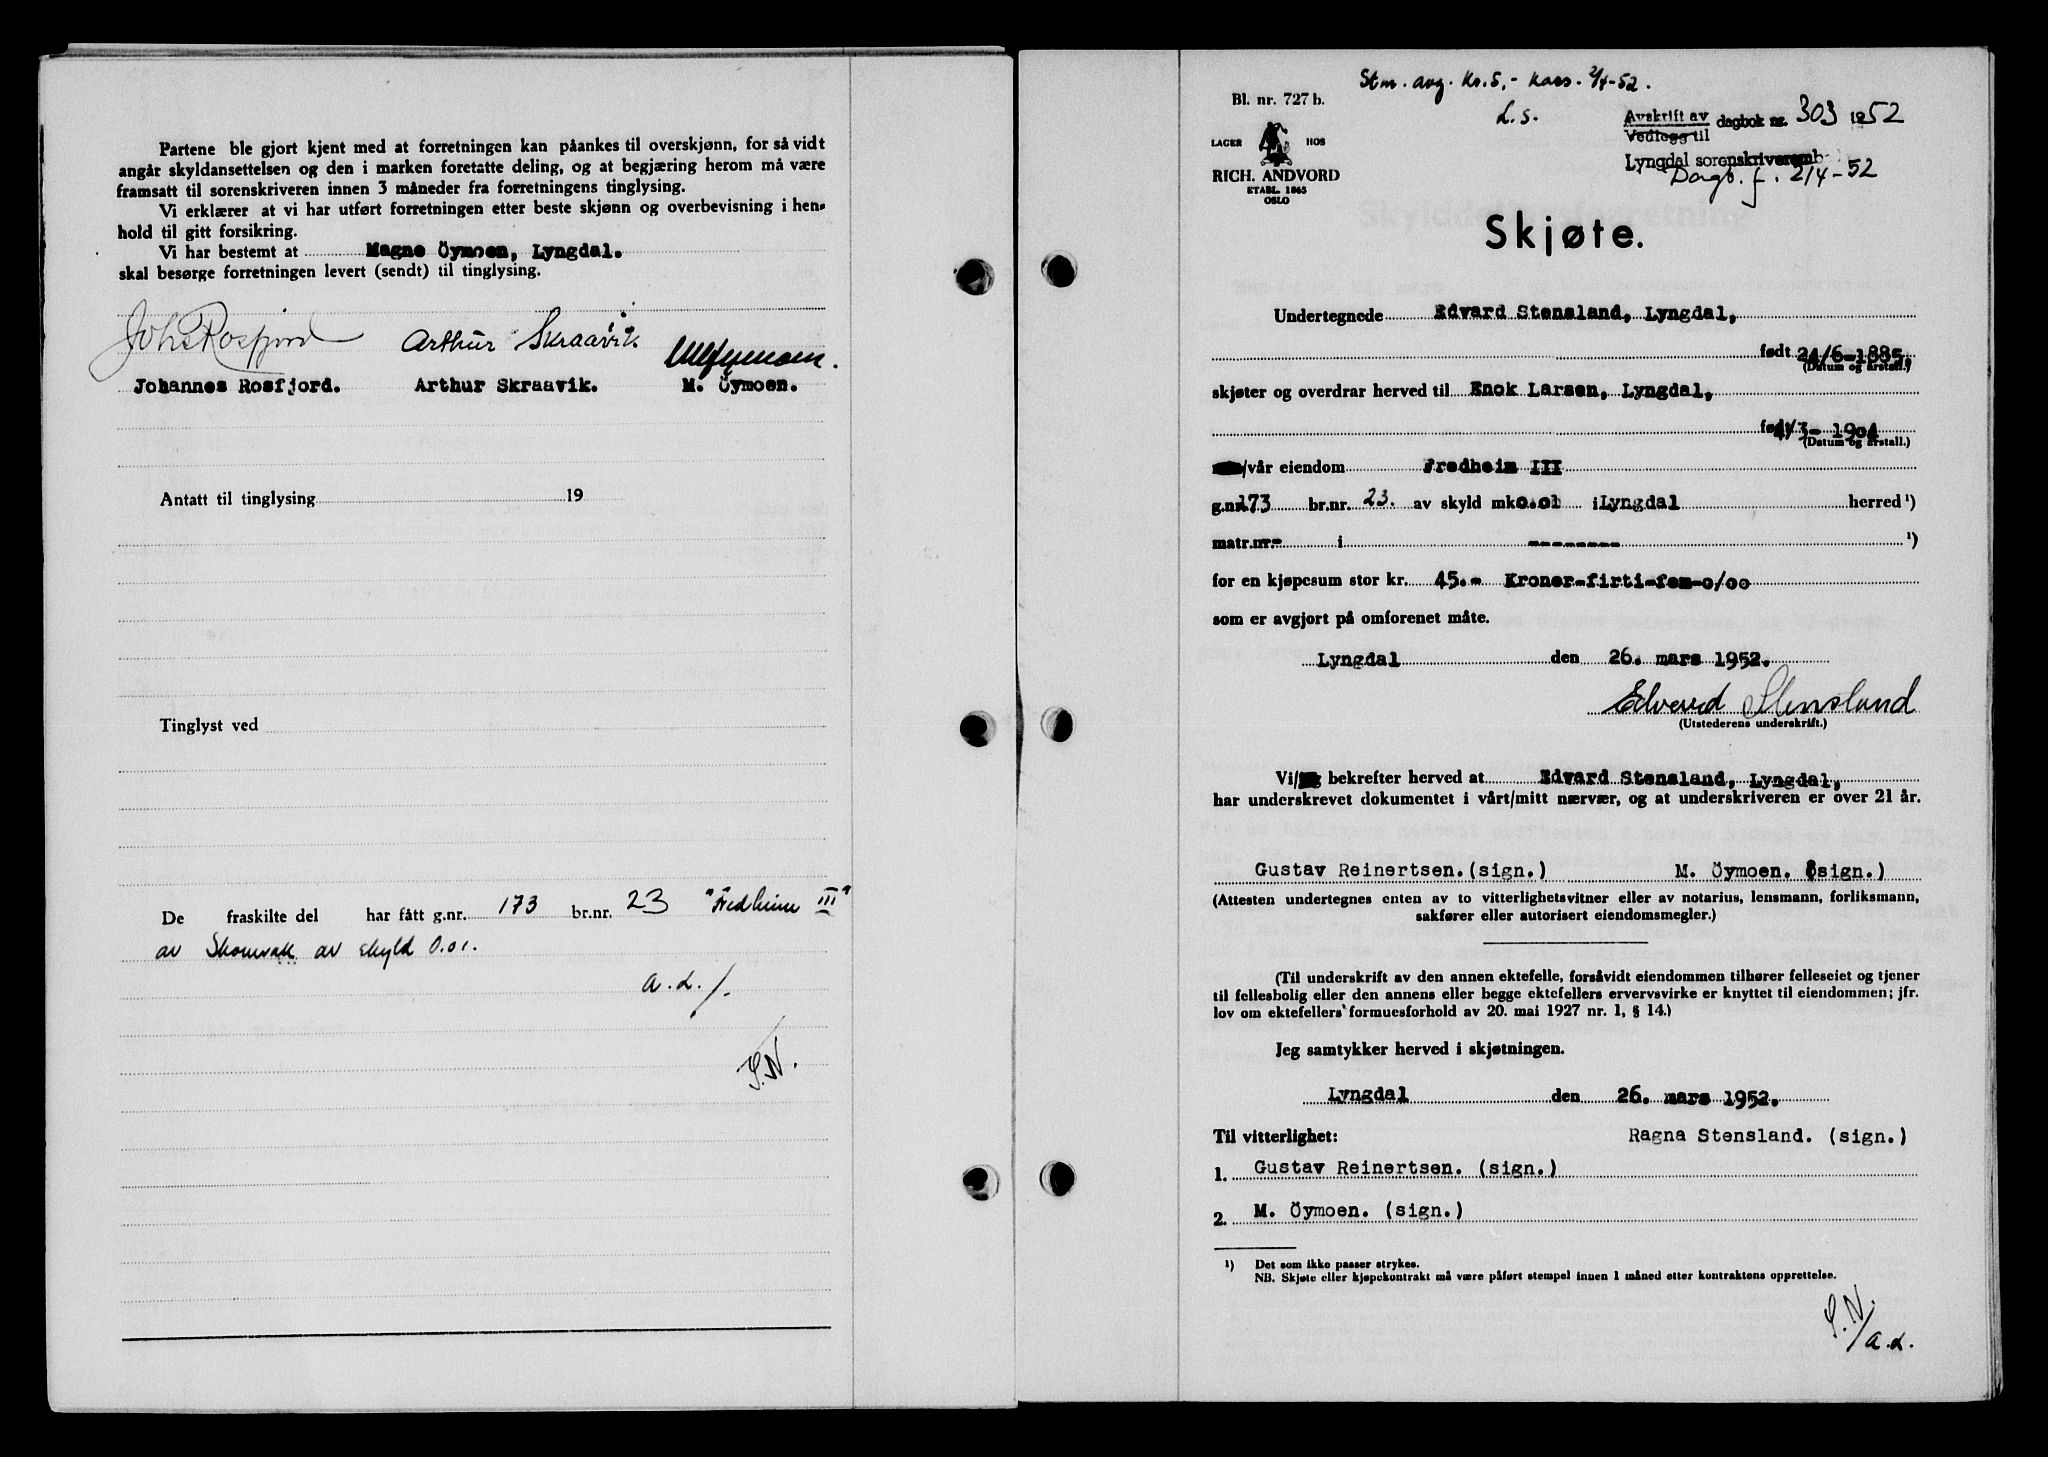 Partene ble gjort kjent med at forretningen kan påankes til overskjønn, for så vidt
angår skyldansettelsen og den i marken foretatte deling, og at begjæring herom må være
framsatt til sorenskriveren innen 3 måneder fra forretningens tinglysing.
Vi erklærer at vi har utført forretningen etter beste skjønn og overbevisning i hen-
hold til gitt forsikring.
Vi har bestemt at Magne Öymoen, Lyngdal.
skal besørge forretningen levert (sendt) til tinglysing.
Johs Rosfjord Arthur Skraavik
Johannes Rosfjord. Arthur Skraavik. M. Öymoen.
Antatt til tinglysing 19
Tinglyst ved
De fraskilte del har fått g.nr. 173 br.nr. 23 "Fredheim III"
av skyld 0.01.
a.d./.
S.N.
Stm. avg. Kr. 5,- kass. 2/4-52.
L.S.
Bl. nr. 727 b.
LAGER HOS
RICH. ANDVORD
ETABL. 1865
OSLO
Avskrift av
Vedlegg til dagbok nr. 303 1952
Lyngdal sorenskriveremb
Dagb. f. 2/4-52
Skjøte.
Undertegnede Edvard Stensland, Lyngdal,
født 24/6-1885,
(Datum og årstall.)
skjøter og overdrar herved til Enok Larsen, Lyngdal,
født 4/3-1904
(Datum og årstall.)
/vår eiendom Fredheim III
g.nr. 173 br.nr. 23. av skyld mk 0.01 i Lyngdal herred ¹)
matr.nr.- i -------- ¹)
for en kjøpesum stor kr. 45.- Kroner-firti-fem-o/oo
som er avgjort på omforenet måte.
Lyngdal den 26. mars 1952.
Edvard Stensland
(Utstederens underskrift.)
Vi/ bekrefter herved at Edvard Stensland, Lyngdal,
har underskrevet dokumentet i vårt/mitt nærvær, og at underskriveren er over 21 år.
Gustav Reinertsen. (sign.) M. Öymoen. (sign.)
(Attesten undertegnes enten av to vitterlighetsvitner eller av notarius, lensmann, forliksmann,
sakfører eller autorisert eiendomsmegler.)
(Til underskrift av den annen ektefelle, forsåvidt eiendommen tilhører felleseiet og tjener
til fellesbolig eller den annens eller begge ektefellers ervervsvirke er knyttet til eiendommen; jfr.
lov om ektefellers formuesforhold av 20. mai 1927 nr. 1, § 14.)
Jeg samtykker herved i skjøtningen.
Lyngdal den 26. mars 1952.
Til vitterlighet: Ragna Stensland. (sign.)
1. Gustav Reinertsen. (sign.)
2. M. Öymoen. (sign.)
¹) Det som ikke passer strykes.
NB. Skjøte eller kjøpekontrakt må være påført stempel innen 1 måned etter kontraktens opprettelse.
S.N./
a.d.